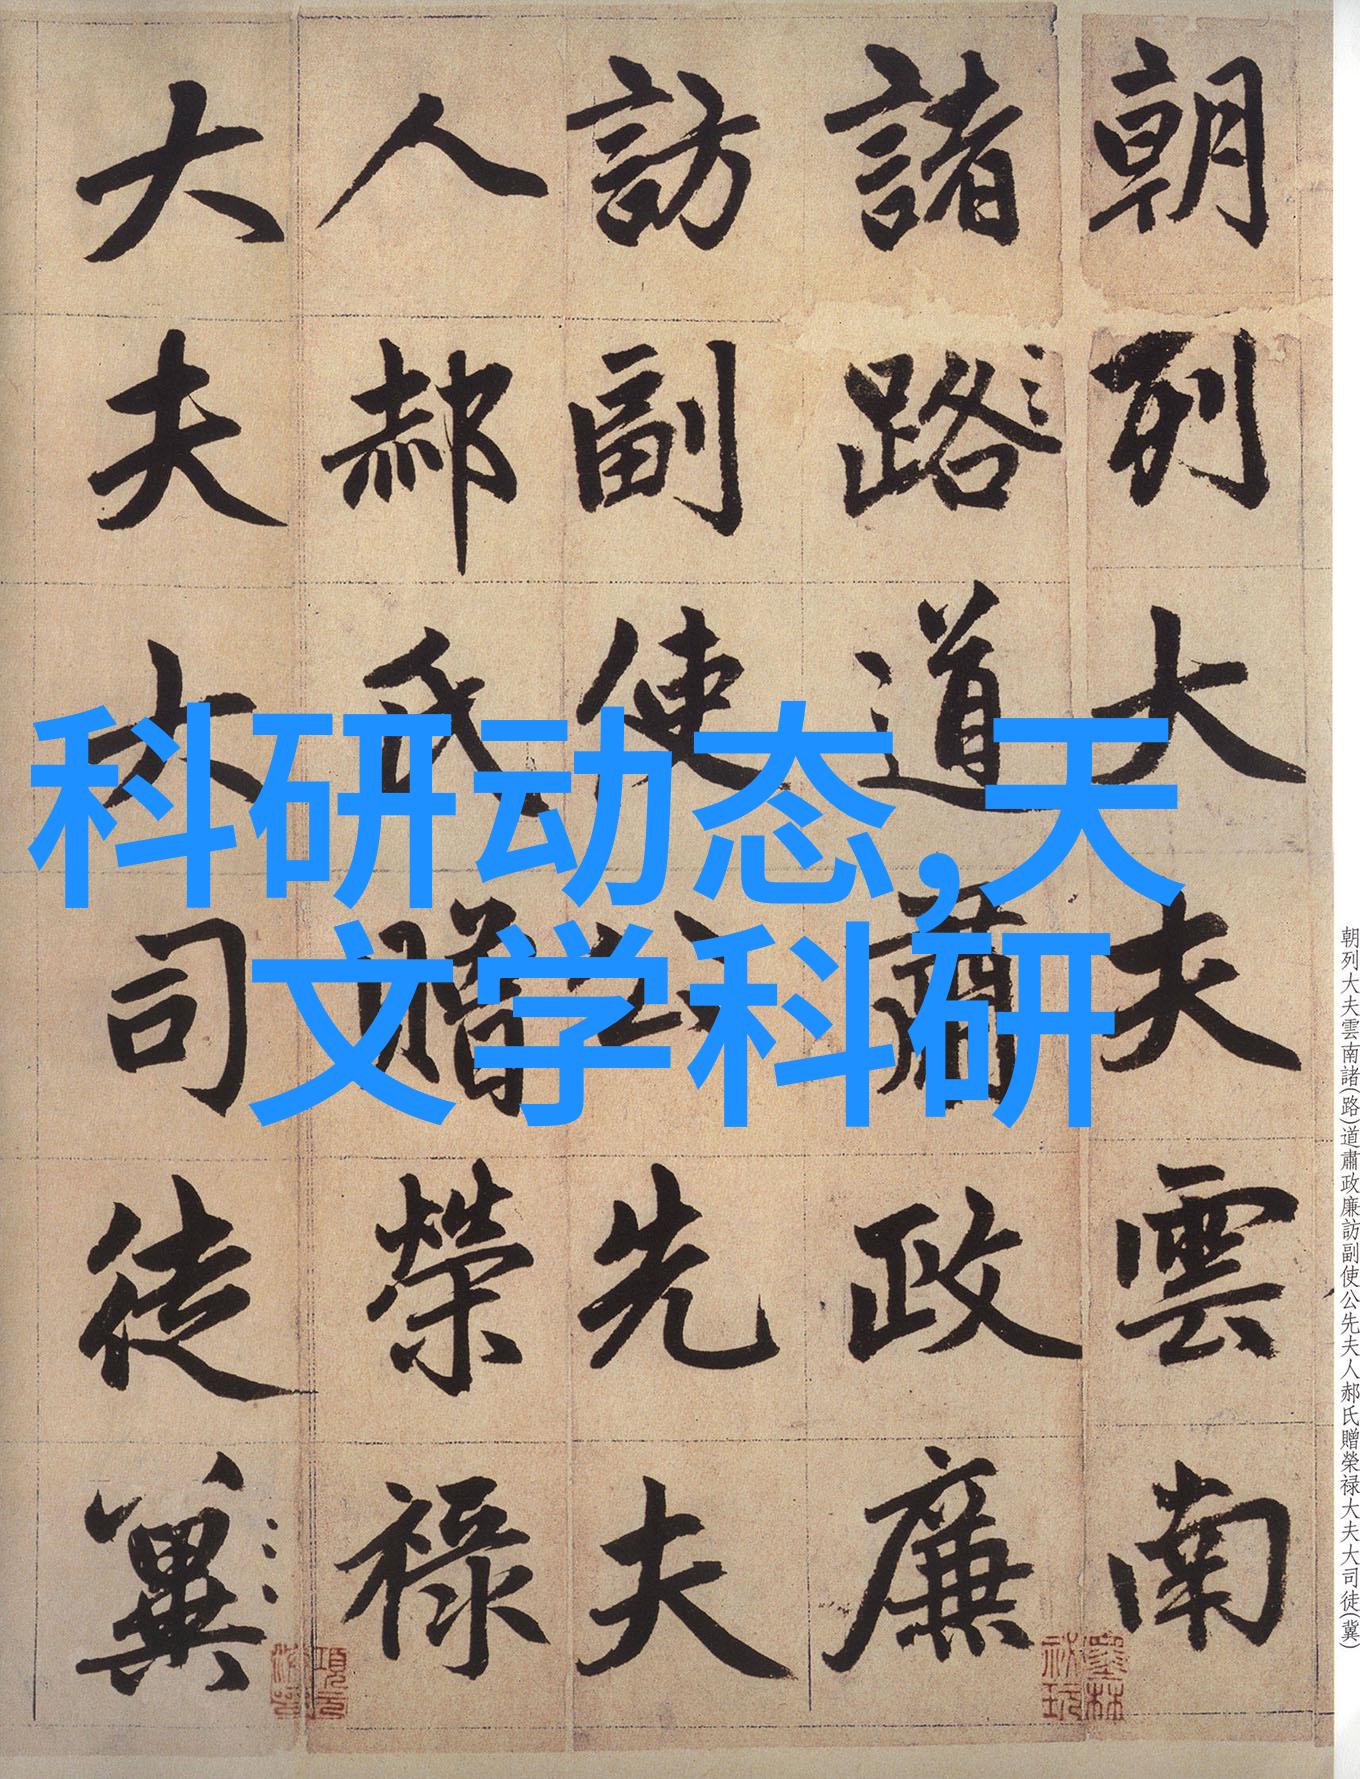 朝列大夫雲南
諸路道肅政廉
訪副使公先夫
人郝氏贈榮祿
大夫大司徒冀
科研动态,天
文学科研
朝列大夫雲南諸(路)道肅政廉訪副使公先夫人郝氏贈榮禄大夫大司徒(冀)